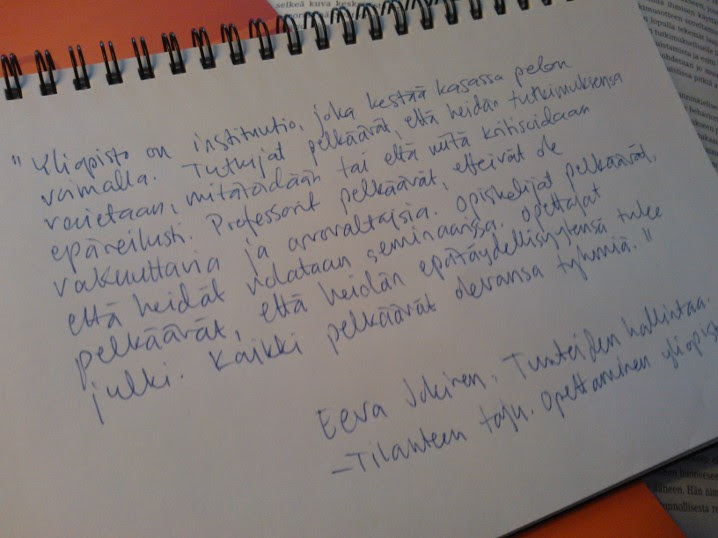 selkeä kuva
"Yliopisto on instituutio, joka kestää kasassa pelon
voimalla. Tutkijat pelkäävät, että heidän tutkimuksensa
varastetaan, mitätöidään tai että niitä kritisoidaan
epäreilusti. Professorit pelkäävät, etteivät ole
vakuuttavia ja arvovaltaisia. Opiskelijat pelkäävät,
että heidät nolataan seminaarissa. Opettajat
pelkäävät, että heidän epätäydellisyytensä tulee
julki. Kaikki pelkäävät olevansa tyhmiä."
Eeva Jokinen. Tunteiden hallintaa.
– Tilanteen taju. Opettaminen yliopis